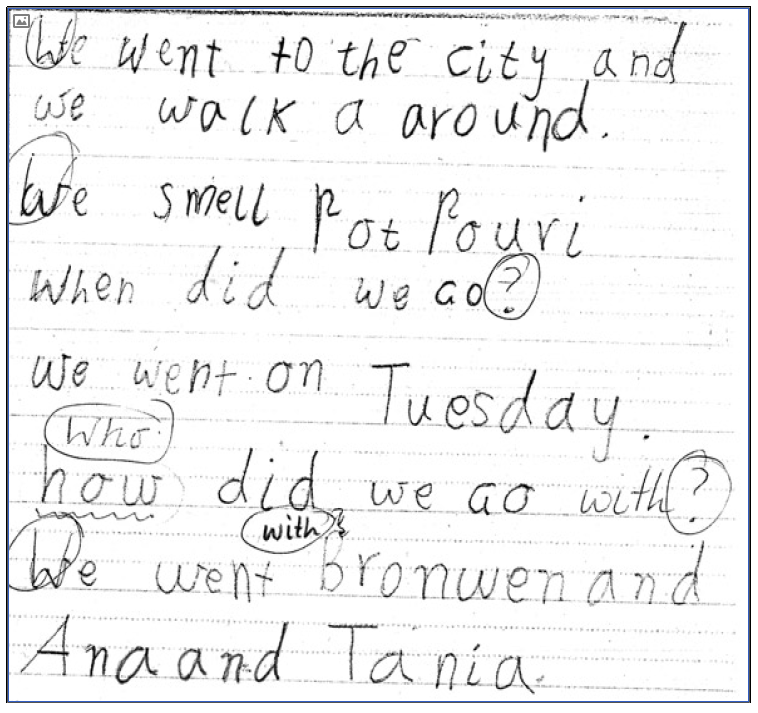 We went to the city and
we walk a around.
We smell Pot Pouri
When did we go?
we went on Tuesday.
Who
how did we go with?
with
We went bronwen and
Ana and Tania.